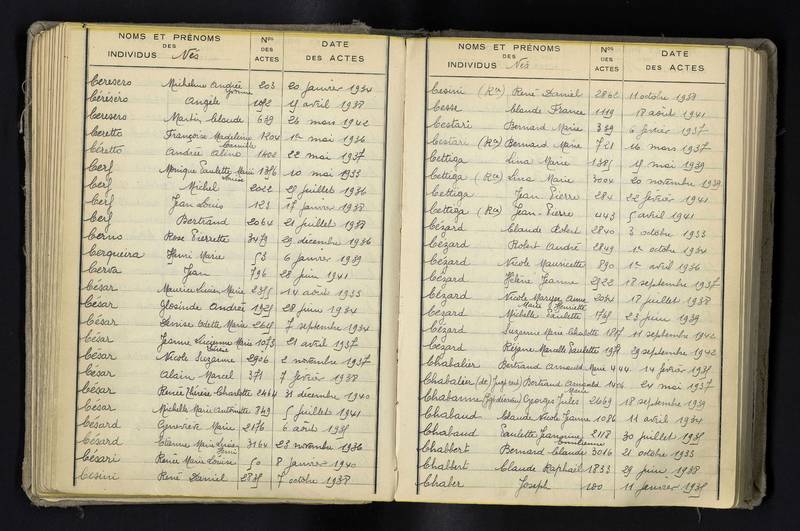 NOMS ET PRÉNOMS
DES
INDIVIDUS Nés
Nos
DES
ACTES
DATE
DES ACTES
Ceresero Micheline Andrée 203 20 janvier 1934
Cérésero Angèle 1092 4 avril 1938
Ceresero Martin Claude 689 24 mars 1942
Ceretto Françoise Madeleine 1204 1er mai 1936
Céretto Andrée Aline Camille 1400 22 mai 1937
Cerf Monique Paulette Marie Louise 1356 10 mai 1933
Cerf Michel 2022 28 juillet 1936
Cerf Jean Louis 123 15 janvier 1938
Cerf Bertrand 2064 21 juillet 1938
Cerno Rose Pierrette 3479 29 décembre 1936
Cerqueira Henri Marie 53 6 janvier 1939
Cerva Jean 796 28 juin 1941
César Maurice Lucien Marie 2355 14 août 1933
César Glosinde Andrée 1925 28 juin 1934
César Denise Odette Marie 2645 7 septembre 1934
César Jeanne Lucienne Marie Louise 1073 21 avril 1937
César Nicole Suzanne 2906 2 novembre 1937
César Alain Marcel 371 7 février 1938
César Renée Thérèse Charlotte 2464 31 décembre 1940
César Michelle Marie Antoinette 849 5 juillet 1941
Césard Geneviève Marie 2176 6 août 1935
Césard Etienne Marie Louis Henri 3164 23 novembre 1936
Césari Renée Marie Louise 50 8 janvier 1940
Cesini René Daniel 2835 7 octobre 1938
NOMS ET PRÉNOMS
DES
INDIVIDUS Nés
Nos
DES
ACTES
DATE
DES ACTES
Cesini (Ron) René Daniel 2862 11 octobre 1938
Cesse Claude France 1119 18 août 1941
Cestari Bernard Marie 339 6 février 1937
Cestari (Ron) Bernard Marie 721 16 mars 1937
Cettiga Lina Marie 1385 15 mai 1939
Cettiga (Ron) Lina Marie 3004 20 novembre 1939
Cettiga Jean Pierre 284 22 février 1941
Cettiga (Ron) Jean-Pierre 443 5 avril 1941
Cézard Claude Robert 2840 3 octobre 1933
Cézard Robert André 2849 1er octobre 1934
Cézard Nicole Mauricette 890 1er avril 1936
Cézard Hélène Jeanne 2922 18 septembre 1937
Cézard Nicole Maryse Anne Marie Henriette 2024 18 juillet 1938
Cézard Michelle Paulette 1735 23 juin 1939
Cézard Suzanne Marie Charlotte 1817 11 septembre 1942
Cézard Réjane Marcelle Paulette 1981 29 septembre 1942
Chabalier Bertrand Arnould Marie 444 14 février 1938
Chabalier (de) Bertrand Arnould Marie 1404 24 mai 1937
Chabanne Georges Jules 2669 18 septembre 1939
Chabaud Claude Nicole Jeanne 1086 11 avril 1934
Chabaud Paulette Jeannine 2118 30 juillet 1935
Chabbert Bernard Claude 3016 21 octobre 1933
Chabbert Claude Raphaël 1833 29 juin 1938
Chaber Joseph 100 11 janvier 1935